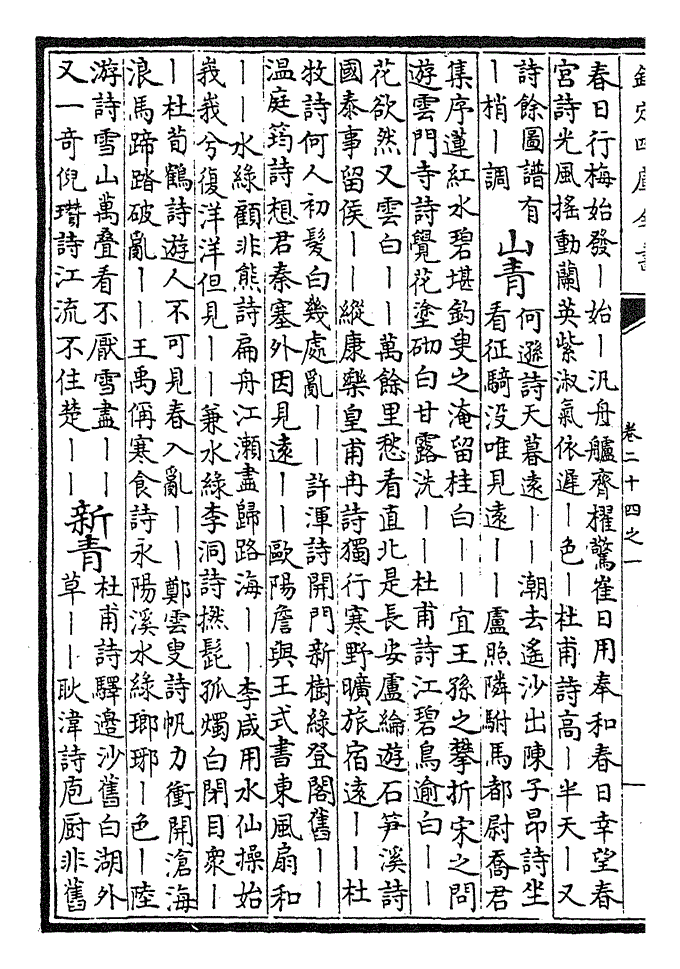 欽定四庫全書
卷二十四之一
春日行梅始發｜始｜汎舟艫齊櫂驚崔日用奉和春日幸望春
宮詩光風搖動蘭英紫淑氣依遲｜色｜杜甫詩高｜半天｜又
詩餘圖譜有
｜梢｜調
山青
何遜詩天暮遠｜｜潮去遙沙出陳子昂詩坐
看征騎没唯見遠｜｜盧照隣駙馬都尉喬君
集序蓮紅水碧堪釣叟之淹留桂白｜｜宜王孫之攀折宋之問
遊雲門寺詩覺花塗砌白甘露洗｜｜杜甫詩江碧鳥逾白｜｜
花欲然又雲白｜｜萬餘里愁看直北是長安盧綸遊石笋溪詩
國泰事留侯｜｜縱康樂皇甫冉詩獨行寒野曠旅宿遠｜｜杜
牧詩何人初髮白幾處亂｜｜許渾詩開門新樹綠登閣舊｜｜
温庭筠詩想君秦塞外因見遠｜｜歐陽詹與王式書東風扇和
｜｜水綠顧非熊詩扁舟江瀬盡歸路海｜｜李咸用水仙操始
峩峩兮復洋洋但見｜｜兼水綠李洞詩撚髭孤燭白閉目衆｜
｜杜荀鶴詩遊人不可見春入亂｜｜鄭雲叟詩帆力衝開滄海
浪馬蹄踏破亂｜｜王禹偁寒食詩永陽溪水綠瑯琊｜色｜陸
游詩雪山萬叠看不厭雪盡｜｜
又一奇倪瓚詩江流不住楚｜｜
新青
杜甫詩驛邊沙舊白湖外
草｜｜耿湋詩庖厨非舊